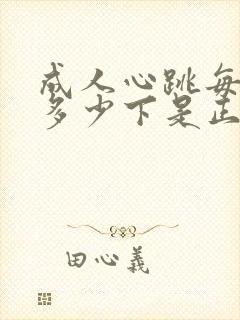 成人心跳每
多少下是正
田心義